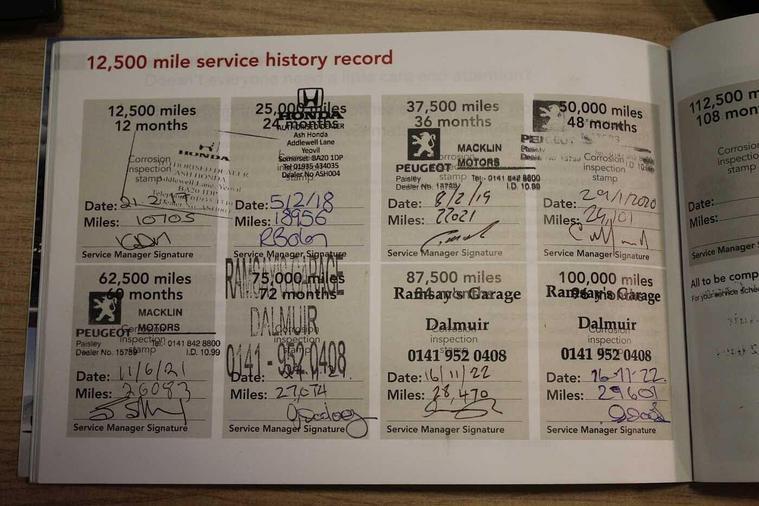 12,500 mile service history record
12,500 miles
12 months
Corrosion
inspection
stamp
HONDA
Date: 21.2.17
Miles: 10705
Service Manager Signature
25,000 miles
24 months
HONDA
AUTHORISED DEALER
Ash Honda
Addlewell Lane
Yeovil
Somerset BA20 1DP
Tel 01935 434035
Dealer No ASH004
Date: 5/2/18
Miles: 18956
Service Manager Signature
37,500 miles
36 months
MACKLIN
MOTORS
PEUGEOT
Paisley Tel:- 0141 842 8800
Dealer No. 15759 I.D. 10.99
Date: 8/2/19
Miles: 22021
Service Manager Signature
50,000 miles
48 months
Corrosion
inspection
stamp
Date: 29/1/2020
Miles:
Service Manager Signature
62,500 miles
60 months
MACKLIN
MOTORS
PEUGEOT
Paisley Tel:- 0141 842 8800
Dealer No. 15759 I.D. 10.99
Date: 11/6/21
Miles: 26083
Service Manager Signature
RAMSAY'S GARAGE
75,000 miles
72 months
DALMUIR
Corrosion
inspection
stamp
0141 - 952 0408
Date:
Miles: 27,074
Service Manager Signature
87,500 miles
Ramsay's Garage
Dalmuir
0141 952 0408
Date: 16/11/22
Miles: 28,470
Service Manager Signature
100,000 miles
Ramsay's Garage
Dalmuir
0141 952 0408
Date: 16-11-22
Miles: 29601
Service Manager Signature
112,500 m
108 mon
Corrosio
inspectio
stamp
Date:
Miles:
Service Manager
All to be comp
For your service sche